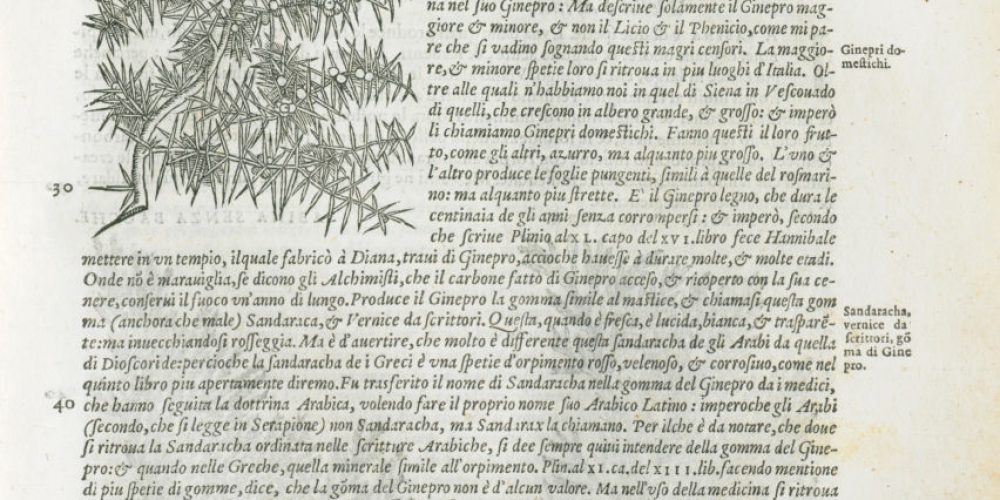 na nel ſuo Ginepro : Ma deſcriue ſolamente il Ginepro mag-
giore & minore, & non il Licio & il Phenicio, come mi pa-
re che ſi vadino ſognando queſti magri cenſori. La maggio-
re, & minore ſpetie loro ſi ritroua in piu luoghi d'Italia. Ol-
tre alle quali n'habbiamo noi in quel di Siena in Veſcouado
di quelli, che creſcono in albero grande, & groſſo: & imperò
li chiamiamo Ginepri domeſtichi. Fanno queſti il loro frut-
to, come gli altri, azurro, ma alquanto piu groſſo. L'vno &
l'altro produce le foglie pungenti, ſimili à quelle del roſmari-
no: ma alquanto piu ſtrette. E' il Ginepro legno, che dura le
centinaia de gli anni ſenza corromperſi : & imperò, ſecondo
che ſcriue Plinio al XL. capo del XVI. libro fece Hannibale
mettere in vn tempio, ilquale fabricò à Diana, traui di Ginepro, accioche haueſſe à durare molte, & molte etadi.
Onde nõ è marauiglia, ſe dicono gli Alchimiſti, che il carbone fatto di Ginepro acceſo, & ricoperto con la ſua ce-
nere, conſerui il fuoco vn'anno di lungo. Produce il Ginepro la gomma ſimile al maſtice, & chiamaſi queſta gom
ma (anchora che male) Sandaraca, & Vernice da ſcrittori. Queſta, quando è freſca, è lucida, bianca, & traſparẽ-
te: ma inuecchiandoſi roſſeggia. Ma è d'auertire, che molto è differente queſta ſandaracha de gli Arabi da quella
di Dioſcoride: percioche la ſandaracha de i Greci è vna ſpetie d'orpimento roſſo, velenoſo, & corroſiuo, come nel
quinto libro piu apertamente diremo. Fu trasferito il nome di Sandaracha nella gomma del Ginepro da i medici,
che hanno ſeguita la dottrina Arabica, volendo fare il proprio nome ſuo Arabico Latino : imperoche gli Arabi
(ſecondo, che ſi legge in Serapione) non Sandaracha, ma Sandarax la chiamano. Per ilche è da notare, che doue
ſi ritroua la Sandaracha ordinata nelle ſcritture Arabiche, ſi dee ſempre quiui intendere della gomma del Gine-
pro: & quando nelle Greche, quella minerale ſimile all'orpimento. Plin. al XI. ca. del XIII. lib. facendo mentione
di piu ſpetie di gomme, dice, che la gõma del Ginepro non è d'alcun valore. Ma nell'vſo della medicina ſi ritroua
Ginepri do-
meſtichi.
Sandaracha,
vernice da
ſcrittori, gõ
ma di Gine
pro.
30
40